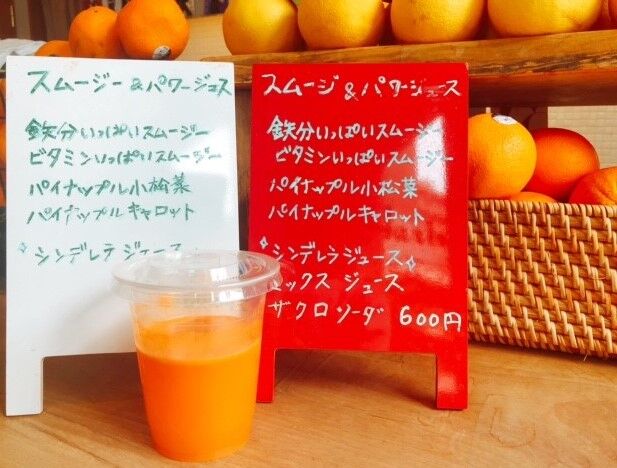 スムージー & パワージュース
鉄分いっぱいスムージー
ビタミンいっぱいスムージー
パイナップル小松菜
パイナップルキャロット
シンデレラジュース
スムージ & パワージュース
鉄分いっぱいスムージー
ビタミンいっぱいスムージー
パイナップル小松菜
パイナップルキャロット
シンデレラジュース
ミックス ジュース
ザクロソーダ 600円